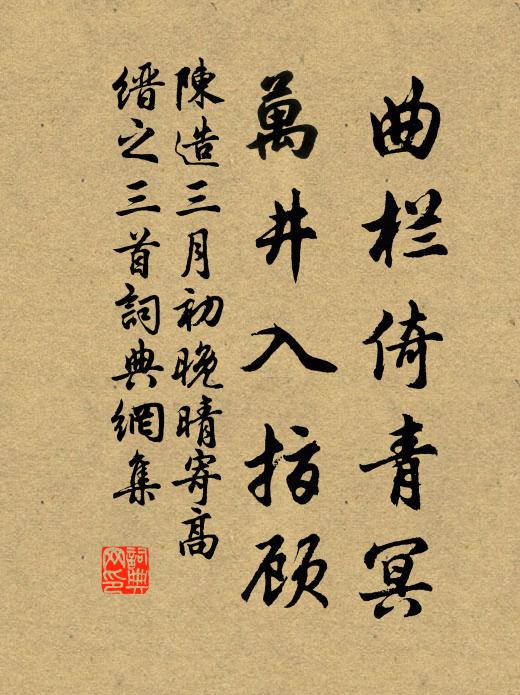 曲栏倚青冥
萬井入指顾
陳造三月初晚晴寄高
缙之三首詞典網集
詞典网印